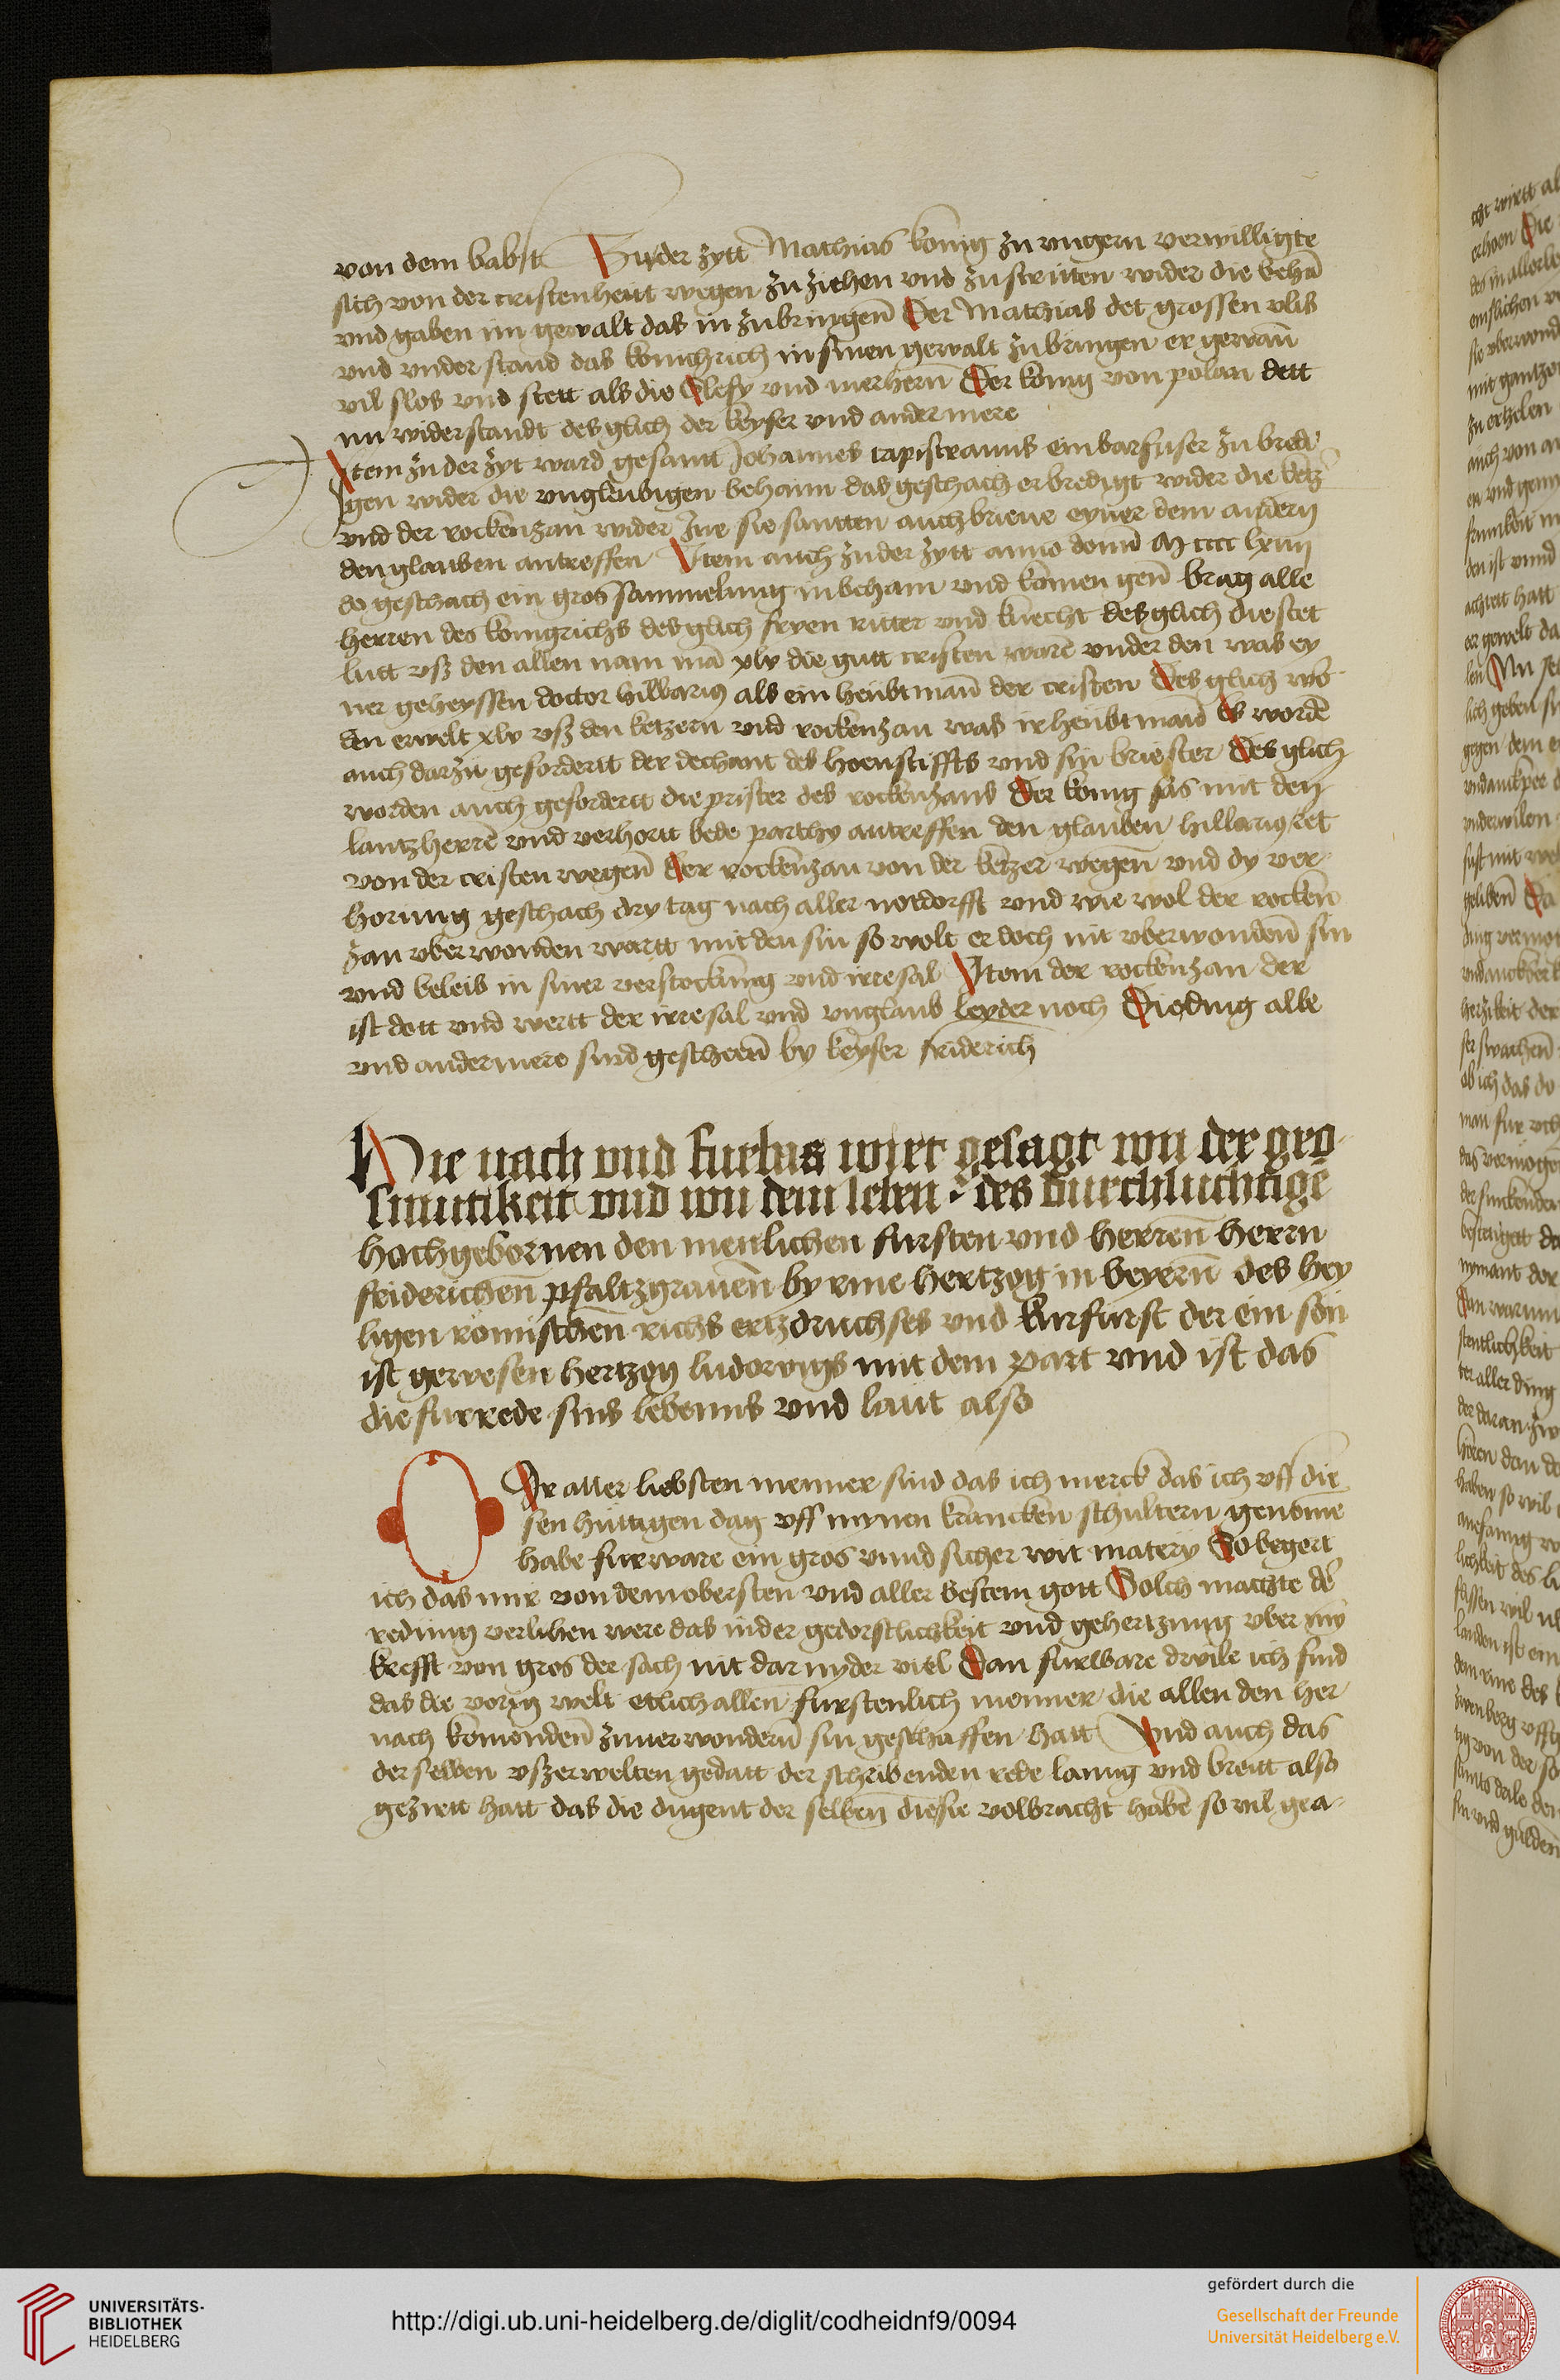 von dem babst Zu der zytt Mathias konig zu vngern verwilligte
sich von der cristenheitt wegen zu ziehen vnd zu striitten wider die behā
vnd gaben im gewalt das in zubringen̄ Der Mathias det grossen vlis
vnd vnder stand das konichrich in sinen gewalt zu bringen er gewan̄
vil slos vnd stett als die Slesy vnd merhern̄ Der konig von polan dett
im widerstandt des glich der keyser vnd ander mere
Item zu der zyt ward gesantt Johannes capistranus ein barfuser zu bredi
gen wider die vngleubigen behaim das geschach er bredigt wider die ketz
vnd der rockenzan wider Jne sie santten auch brieue eyner dem andern
den glauben antreffen Item auch zu der zytt anno domī M cccc lxiiij
do geschach ein gros sammelung in beham vnd komen gen̄ brag alle
herren des konigrichs des glich fryen ritter vnd knecht des glich die stet
lutt vsz den allen nam mā xlv die gutt cristen warē vnder den was ey
ner geheyssen doctor hillarius als ein heubtman̄ der cristen Des glich wo
den erwelt xlv vsz den ketzern vnd rockenzan was ir heubtman̄ Es wordē
auch darzu gefordertt der dechant des hoenstiffts vnd sin briester Des glich
worden auch gefordertt die prister des rockenzans Der konig sas mit den
lantzherrē vnd verhortt bede parthy antreffen den glauben hillarius ret
von der cristen wegen̄ Der rockenzan von der ketzer wegen̄ vnd dy ver
horung geschach dry tag nach aller notdorfft vnd wie wol der rocken
zan vber wonden wartt mit den sin so wolt er doch nit vberwonden̄ sin
vnd beleib in siner verstockung vnd irresal Item der rockenzan der
ist dott vnd wertt der irresal vnd vnglaub leyder noch Die ding alle
vnd ander mere sind gescheen̄ by keyser friderich
Hie nach vnd furbas wirt gesagt von der gro
smuttikeit vnd von dem leben des durchluchtigē
hochgebornen den menlichen fursten vnd herren̄ herrn
friderichen̄ pfaltzgrauen̄ by rine hertzog in beyern̄ des hey
ligen romischen̄ richs ertzdruchses vnd kurfurst der ein son
ist gewesen hertzog ludowigs mit dem part vnd ist das
die furrede sins lebenns vnd laut also
O Ir aller liebsten menner sind das ich merck das ich vff die
sen huttigen dag vff mynen krancken schultern genomē
habe furware ein gros vnnd sicher wit matery So begert
ich das mir von dem obersten vnd aller bestem gott Solch machte dē
redung verlihen were das in der gedorstlichkeit vnd gehertzung vber mȳ
krefft von gros der sach nit dar nyder viel Dan furware dwile ich find
das die vorig welt etlich allen furstenlich menner die allen den her
nach komonden̄ zuuerwondern̄ sin geschaffen hatt Vnd auch das
der selben vszerwelten gedatt der schribenden rede lanng vnd breitt also
geziertt hatt das die dugent der selben̄ die sie volbracht habē so vil gea
UNIVERSITÄTS-
BIBLIOTHEK
HEIDELBERG
http://digi.ub.uni-heidelberg.de/diglit/codheidnf9/0094
gefördert durch die
Gesellschaft der Freunde
Universität Heidelberg e.V.